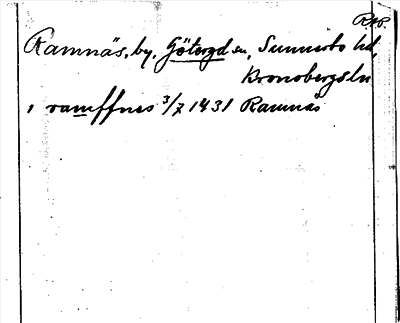 Rap.
Ramnäs, by, Götergd sn, Sunnerbo hd,
Kronobergs ln
i ramffnes 3/7 1431 Ramnäs